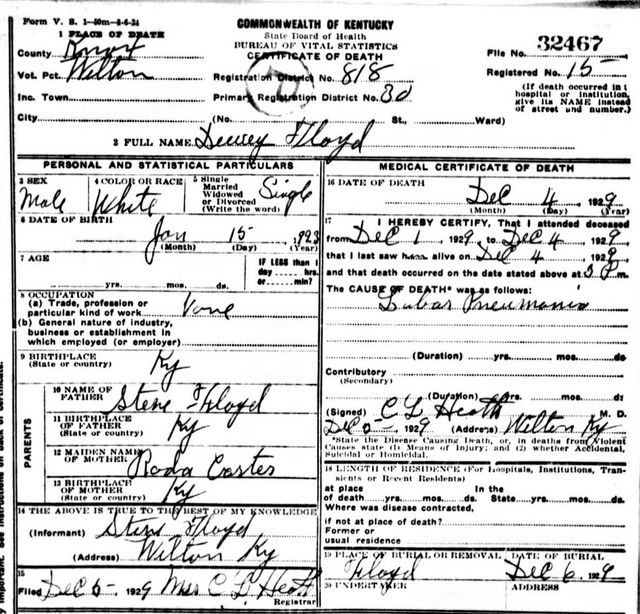 Form V. S. 1-50m-8-6-24
COMMONWEALTH OF KENTUCKY
State Board of Health
BUREAU OF VITAL STATISTICS
CERTIFICATE OF DEATH
1 PLACE OF DEATH
County Knox
File No. 32467
Vot. Pct. Wilton
Registration District No. 818
Registered No. 15
Inc. Town
Primary Registration District No. 30
(If death occurred in a hospital or institution, give its NAME instead of street and number.)
City (No. St., Ward)
2 FULL NAME Dewey Floyd
PERSONAL AND STATISTICAL PARTICULARS
3 SEX
Male
4 COLOR OR RACE
White
5 Single
Married
Widowed
or Divorced
(Write the word)
Single
6 DATE OF BIRTH
Jan 15 1923
(Month) (Day) (Year)
7 AGE
yrs. mos. ds.
IF LESS than 1
day hrs.
or min.?
8 OCCUPATION
(a) Trade, profession or
particular kind of work None
(b) General nature of industry,
business or establishment in
which employed (or employer)
9 BIRTHPLACE
(State or country) Ky
PARENTS
10 NAME OF
FATHER Steve Floyd
11 BIRTHPLACE
OF FATHER
(State or country) Ky
12 MAIDEN NAME
OF MOTHER Roda Caster
13 BIRTHPLACE
OF MOTHER
(State or country) Ky
14 THE ABOVE IS TRUE TO THE BEST OF MY KNOWLEDGE
(Informant) Steve Floyd
(Address) Wilton Ky
15
Filed Dec 5 1929 Mrs C L Heath
Registrar
MEDICAL CERTIFICATE OF DEATH
16 DATE OF DEATH
Dec 4 1929
(Month) (Day) (Year)
17 I HEREBY CERTIFY, That I attended deceased
from Dec 1 1929 to Dec 4 1929,
that I last saw h alive on Dec 4 1929,
and that death occurred on the date stated above at 3 P m.
The CAUSE OF DEATH* was as follows:
Lobar Pneumonia
(Duration) yrs. mos. ds
Contributory
(Secondary)
(Duration) yrs. mos. ds
(Signed) C L Heath M. D.
Dec 5 1929 (Address) Wilton Ky
*State the Disease Causing Death, or, in deaths from Violent
Causes state (1) Means of Injury; and (2) whether Accidental,
Suicidal or Homicidal.
18 LENGTH OF RESIDENCE (For hospitals, Institutions, Tran-
sients or Recent Residents)
at place In the
of death yrs. mos. ds. State yrs. mos. ds
Where was disease contracted,
if not at place of death?
Former or
usual residence
19 PLACE OF BURIAL OR REMOVAL DATE OF BURIAL
Floyd Dec 6 1929
20 UNDERTAKER ADDRESS